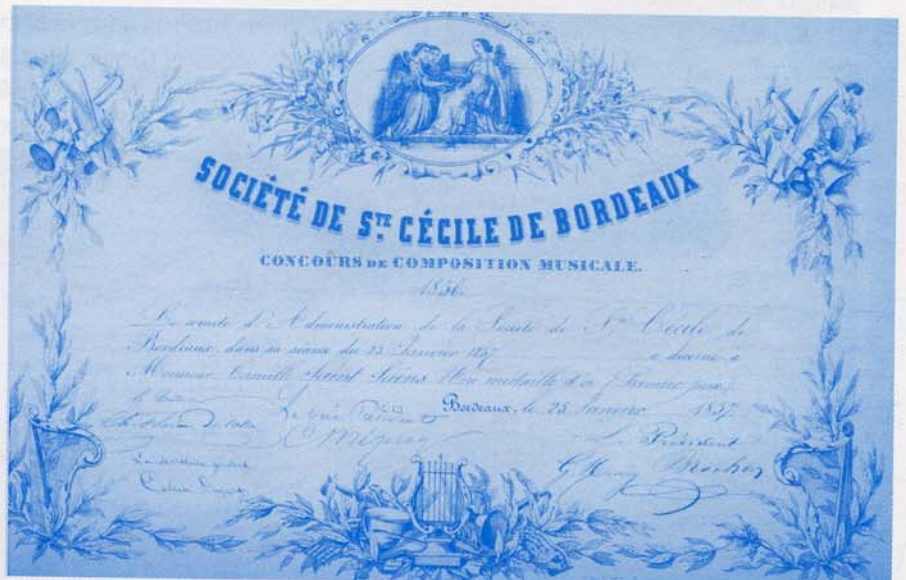 SOCIÉTÉ DE S.TE CÉCILE DE BORDEAUX
CONCOURS DE COMPOSITION MUSICALE.
1856.
Le comité d'Administration de la Société de Ste Cécile de
Bordeaux, dans sa séance du 25 Janvier 1857 a décerné à
Monsieur Camille Saint Saëns Une médaille d'or (Premier prix)
Bordeaux, le 25 Janvier 1857.
Le Président